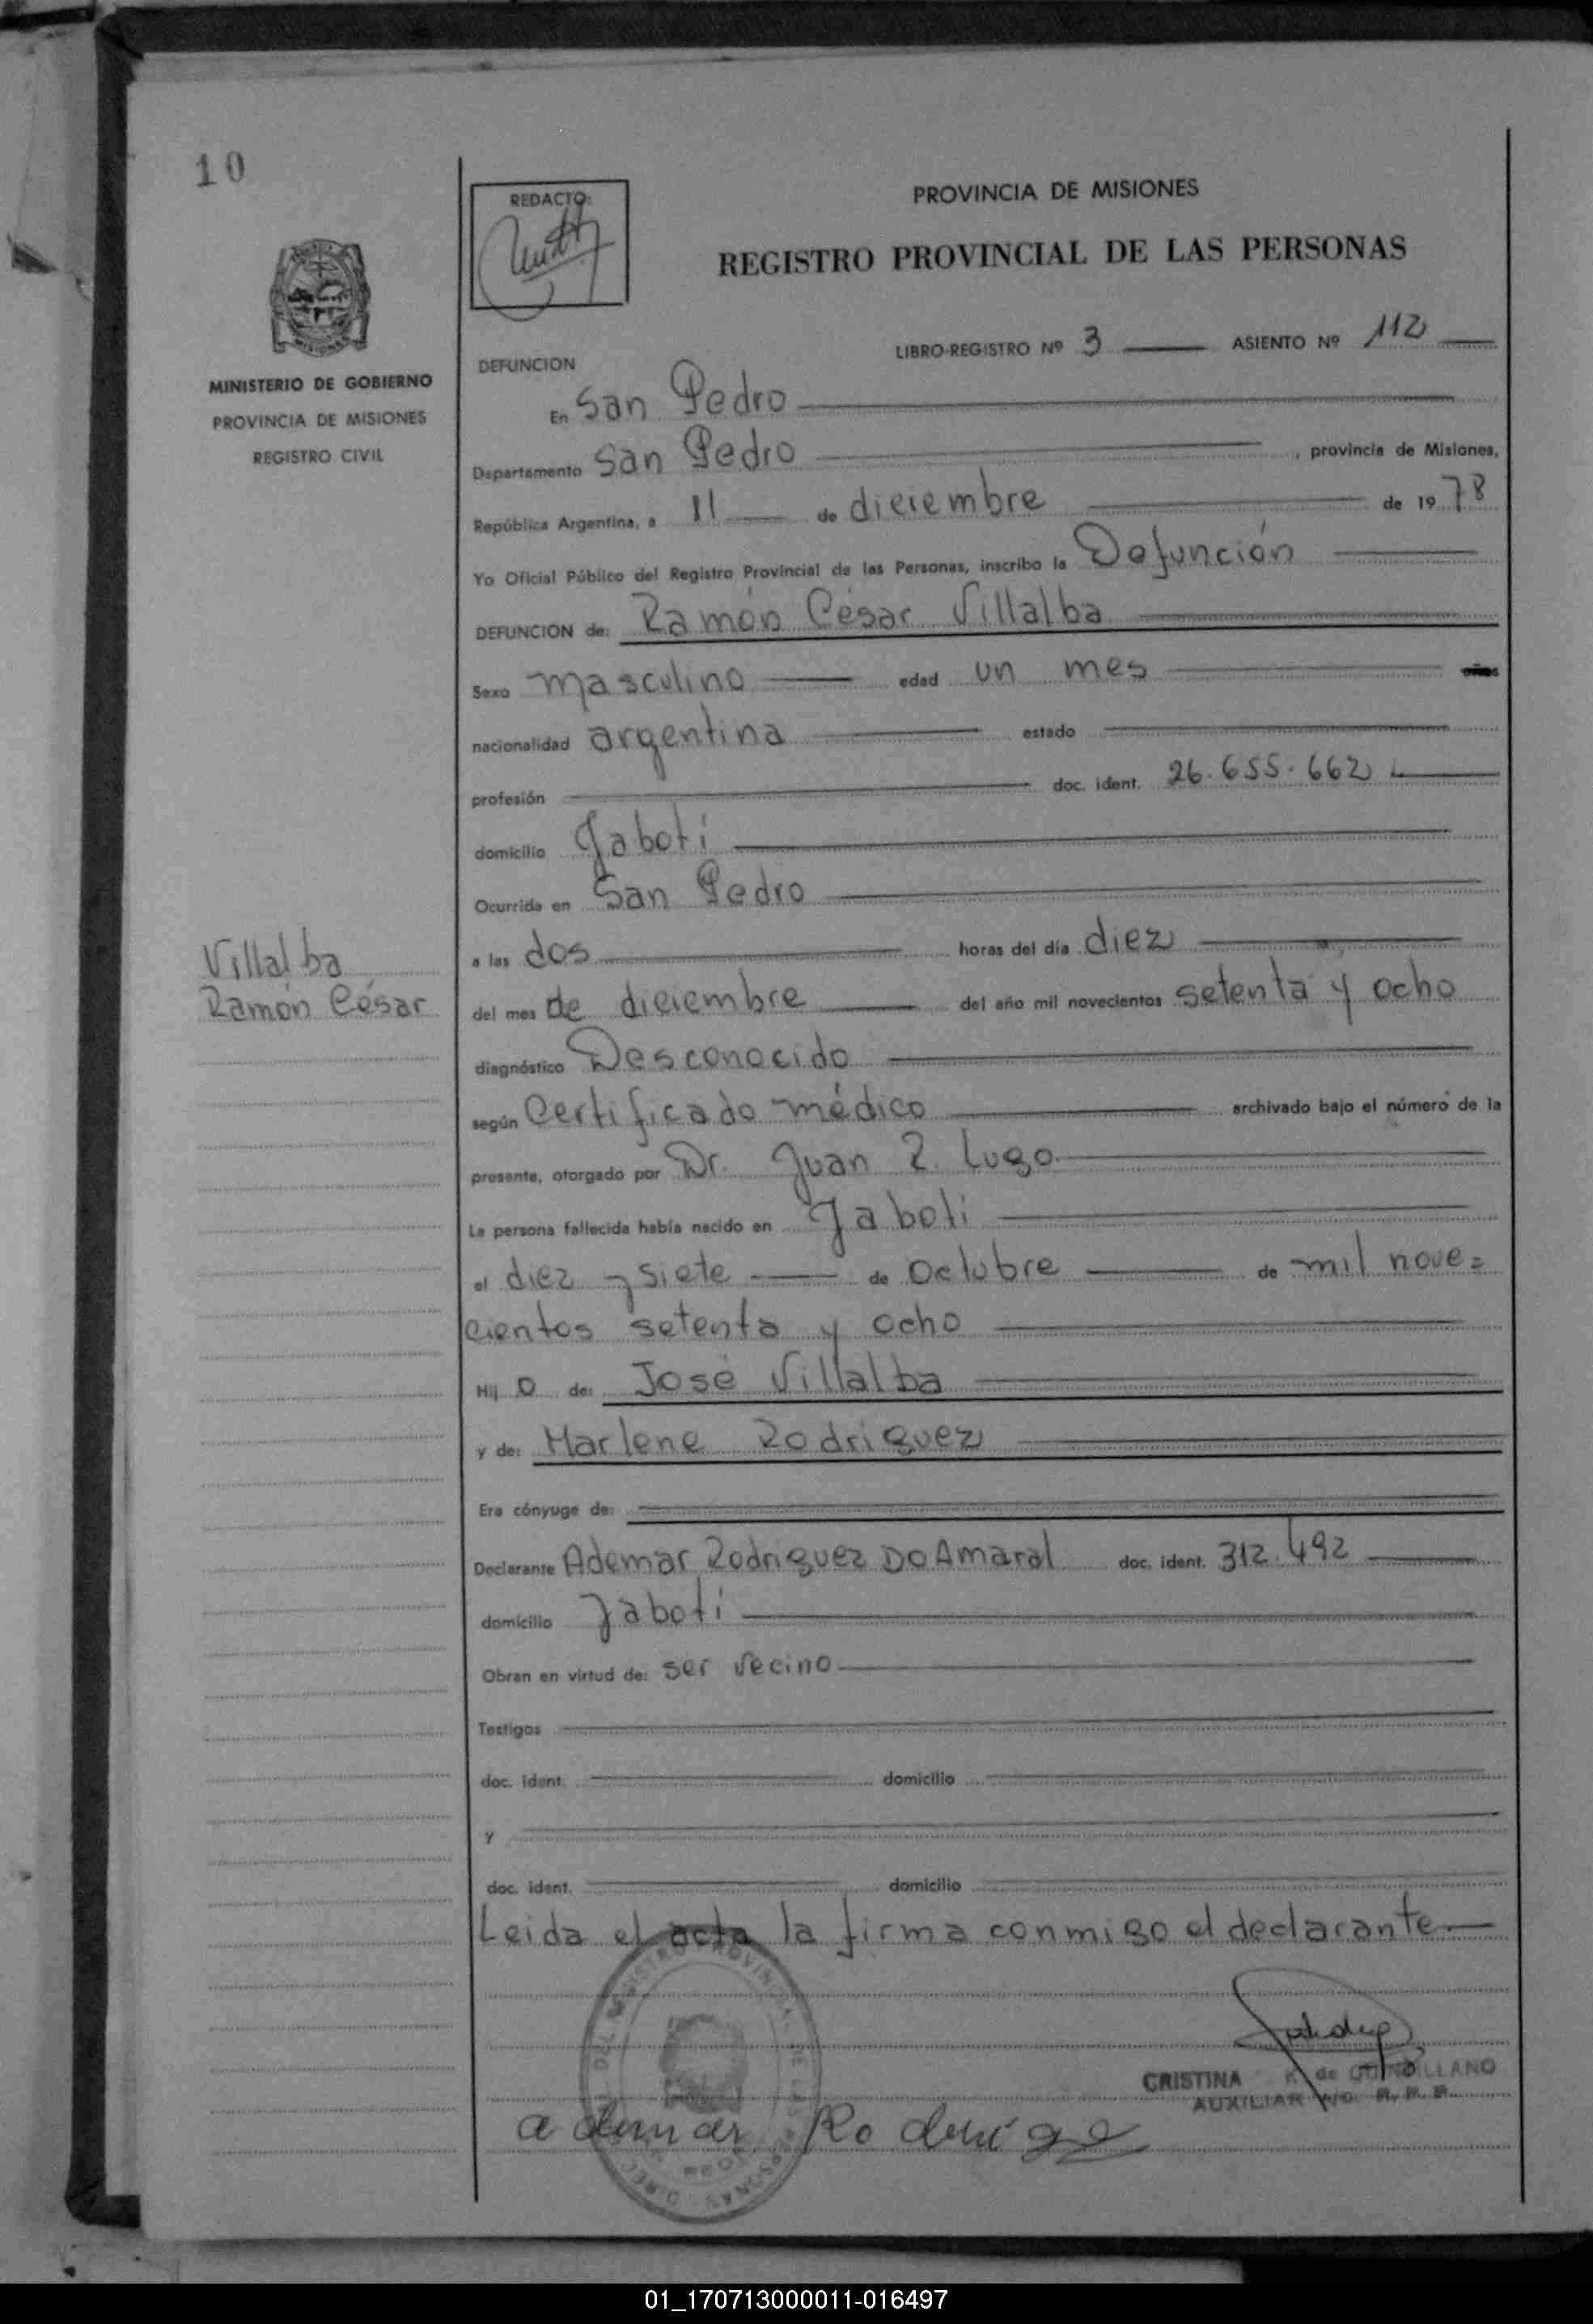 10
REDACTO:
PROVINCIA DE MISIONES
REGISTRO PROVINCIAL DE LAS PERSONAS
MINISTERIO DE GOBIERNO
PROVINCIA DE MISIONES
REGISTRO CIVIL
LIBRO-REGISTRO Nº 3 ASIENTO Nº 112
DEFUNCION
En San Pedro
Departamento San Pedro, provincia de Misiones,
República Argentina, a 11 de diciembre de 1978
Yo Oficial Público del Registro Provincial de las Personas, inscribo la Defunción
DEFUNCION de: Ramón César Villalba
Sexo masculino edad un mes años
nacionalidad argentina estado
profesión doc. ident. 26.655.662
domicilio Jaboti
Ocurrida en San Pedro
Villalba
Ramón César
a las dos horas del día diez
del mes de diciembre del año mil novecientos setenta y ocho
diagnóstico Desconocido
según Certificado médico archivado bajo el número de la
presente, otorgado por Dr. Juan R. Lugo
La persona fallecida había nacido en Jaboti
el diez y siete de Octubre de mil nove=
cientos setenta y ocho
Hij o de: José Villalba
y de: Marlene Rodriguez
Era cónyuge de:
Declarante Ademar Rodriguez Do Amaral doc. ident. 312.492
domicilio Jaboti
Obran en virtud de: ser vecino
Testigos
doc. ident. domicilio
y
doc. ident. domicilio
Leida el acta la firma conmigo el declarante
CRISTINA de
AUXILIAR
01_170713000011-016497